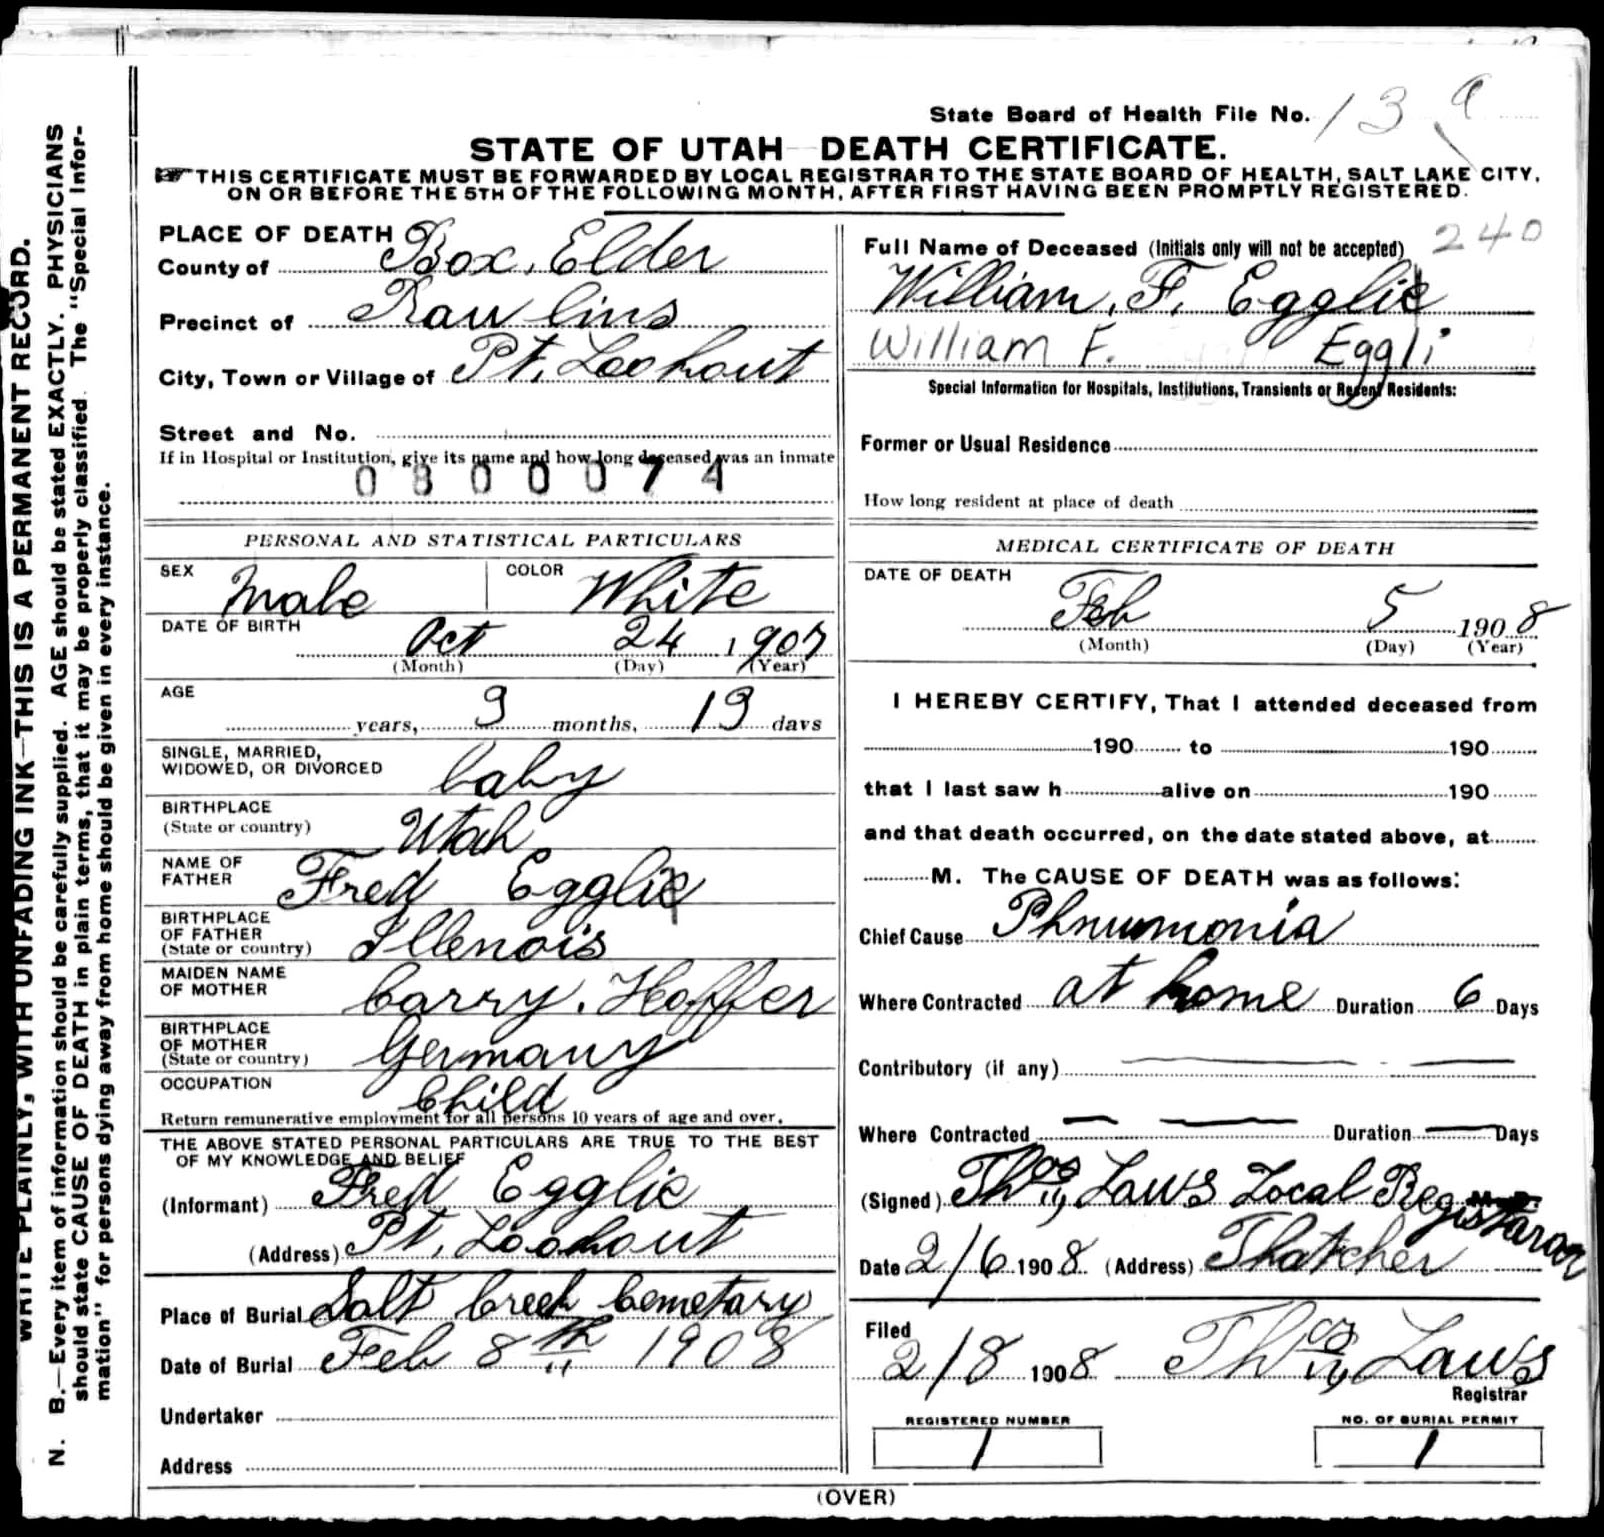 State Board of Health File No. 13 a
240
STATE OF UTAH—DEATH CERTIFICATE.
THIS CERTIFICATE MUST BE FORWARDED BY LOCAL REGISTRAR TO THE STATE BOARD OF HEALTH, SALT LAKE CITY,
ON OR BEFORE THE 5TH OF THE FOLLOWING MONTH, AFTER FIRST HAVING BEEN PROMPTLY REGISTERED.
WRITE PLAINLY, WITH UNFADING INK—THIS IS A PERMANENT RECORD.
N. B.—Every item of information should be carefully supplied. AGE should be stated EXACTLY. PHYSICIANS
should state CAUSE OF DEATH in plain terms, that it may be properly classified. The "Special Infor-
mation" for persons dying away from home should be given in every instance.
PLACE OF DEATH
County of Box Elder
Precinct of Rawlins
City, Town or Village of Pt. Lookout
Street and No.
If in Hospital or Institution, give its name and how long deceased was an inmate
0800074
PERSONAL AND STATISTICAL PARTICULARS
SEX Male COLOR White
DATE OF BIRTH Oct 24, 1907
(Month) (Day) (Year)
AGE years, 3 months, 13 days
SINGLE, MARRIED,
WIDOWED, OR DIVORCED baby
BIRTHPLACE
(State or country) Utah
NAME OF
FATHER Fred Egglie
BIRTHPLACE
OF FATHER
(State or country) Illenois
MAIDEN NAME
OF MOTHER Carry. Hoffer
BIRTHPLACE
OF MOTHER
(State or country) Germany
OCCUPATION Child
Return remunerative employment for all persons 10 years of age and over.
THE ABOVE STATED PERSONAL PARTICULARS ARE TRUE TO THE BEST
OF MY KNOWLEDGE AND BELIEF
(Informant) Fred Egglie
(Address) Pt. Lookout
Place of Burial Salt Creek Cemetary
Date of Burial Feb 8th 1908
Undertaker
Address
Full Name of Deceased (Initials only will not be accepted)
William. F. Egglie
William F. Eggli
Special Information for Hospitals, Institutions, Transients or Recent Residents:
Former or Usual Residence
How long resident at place of death
MEDICAL CERTIFICATE OF DEATH
DATE OF DEATH
Feb 5 1908
(Month) (Day) (Year)
I HEREBY CERTIFY, That I attended deceased from
190 to 190
that I last saw h alive on 190
and that death occurred, on the date stated above, at
M. The CAUSE OF DEATH was as follows:
Chief Cause Phnumonia
Where Contracted at home Duration 6 Days
Contributory (if any)
Where Contracted Duration Days
(Signed) Thos Laws Local Registarar
Date 2/6 1908 (Address) Thatcher
Filed
2/8 1908 Thos Laws
Registrar
REGISTERED NUMBER
1
NO. OF BURIAL PERMIT
1
(OVER)